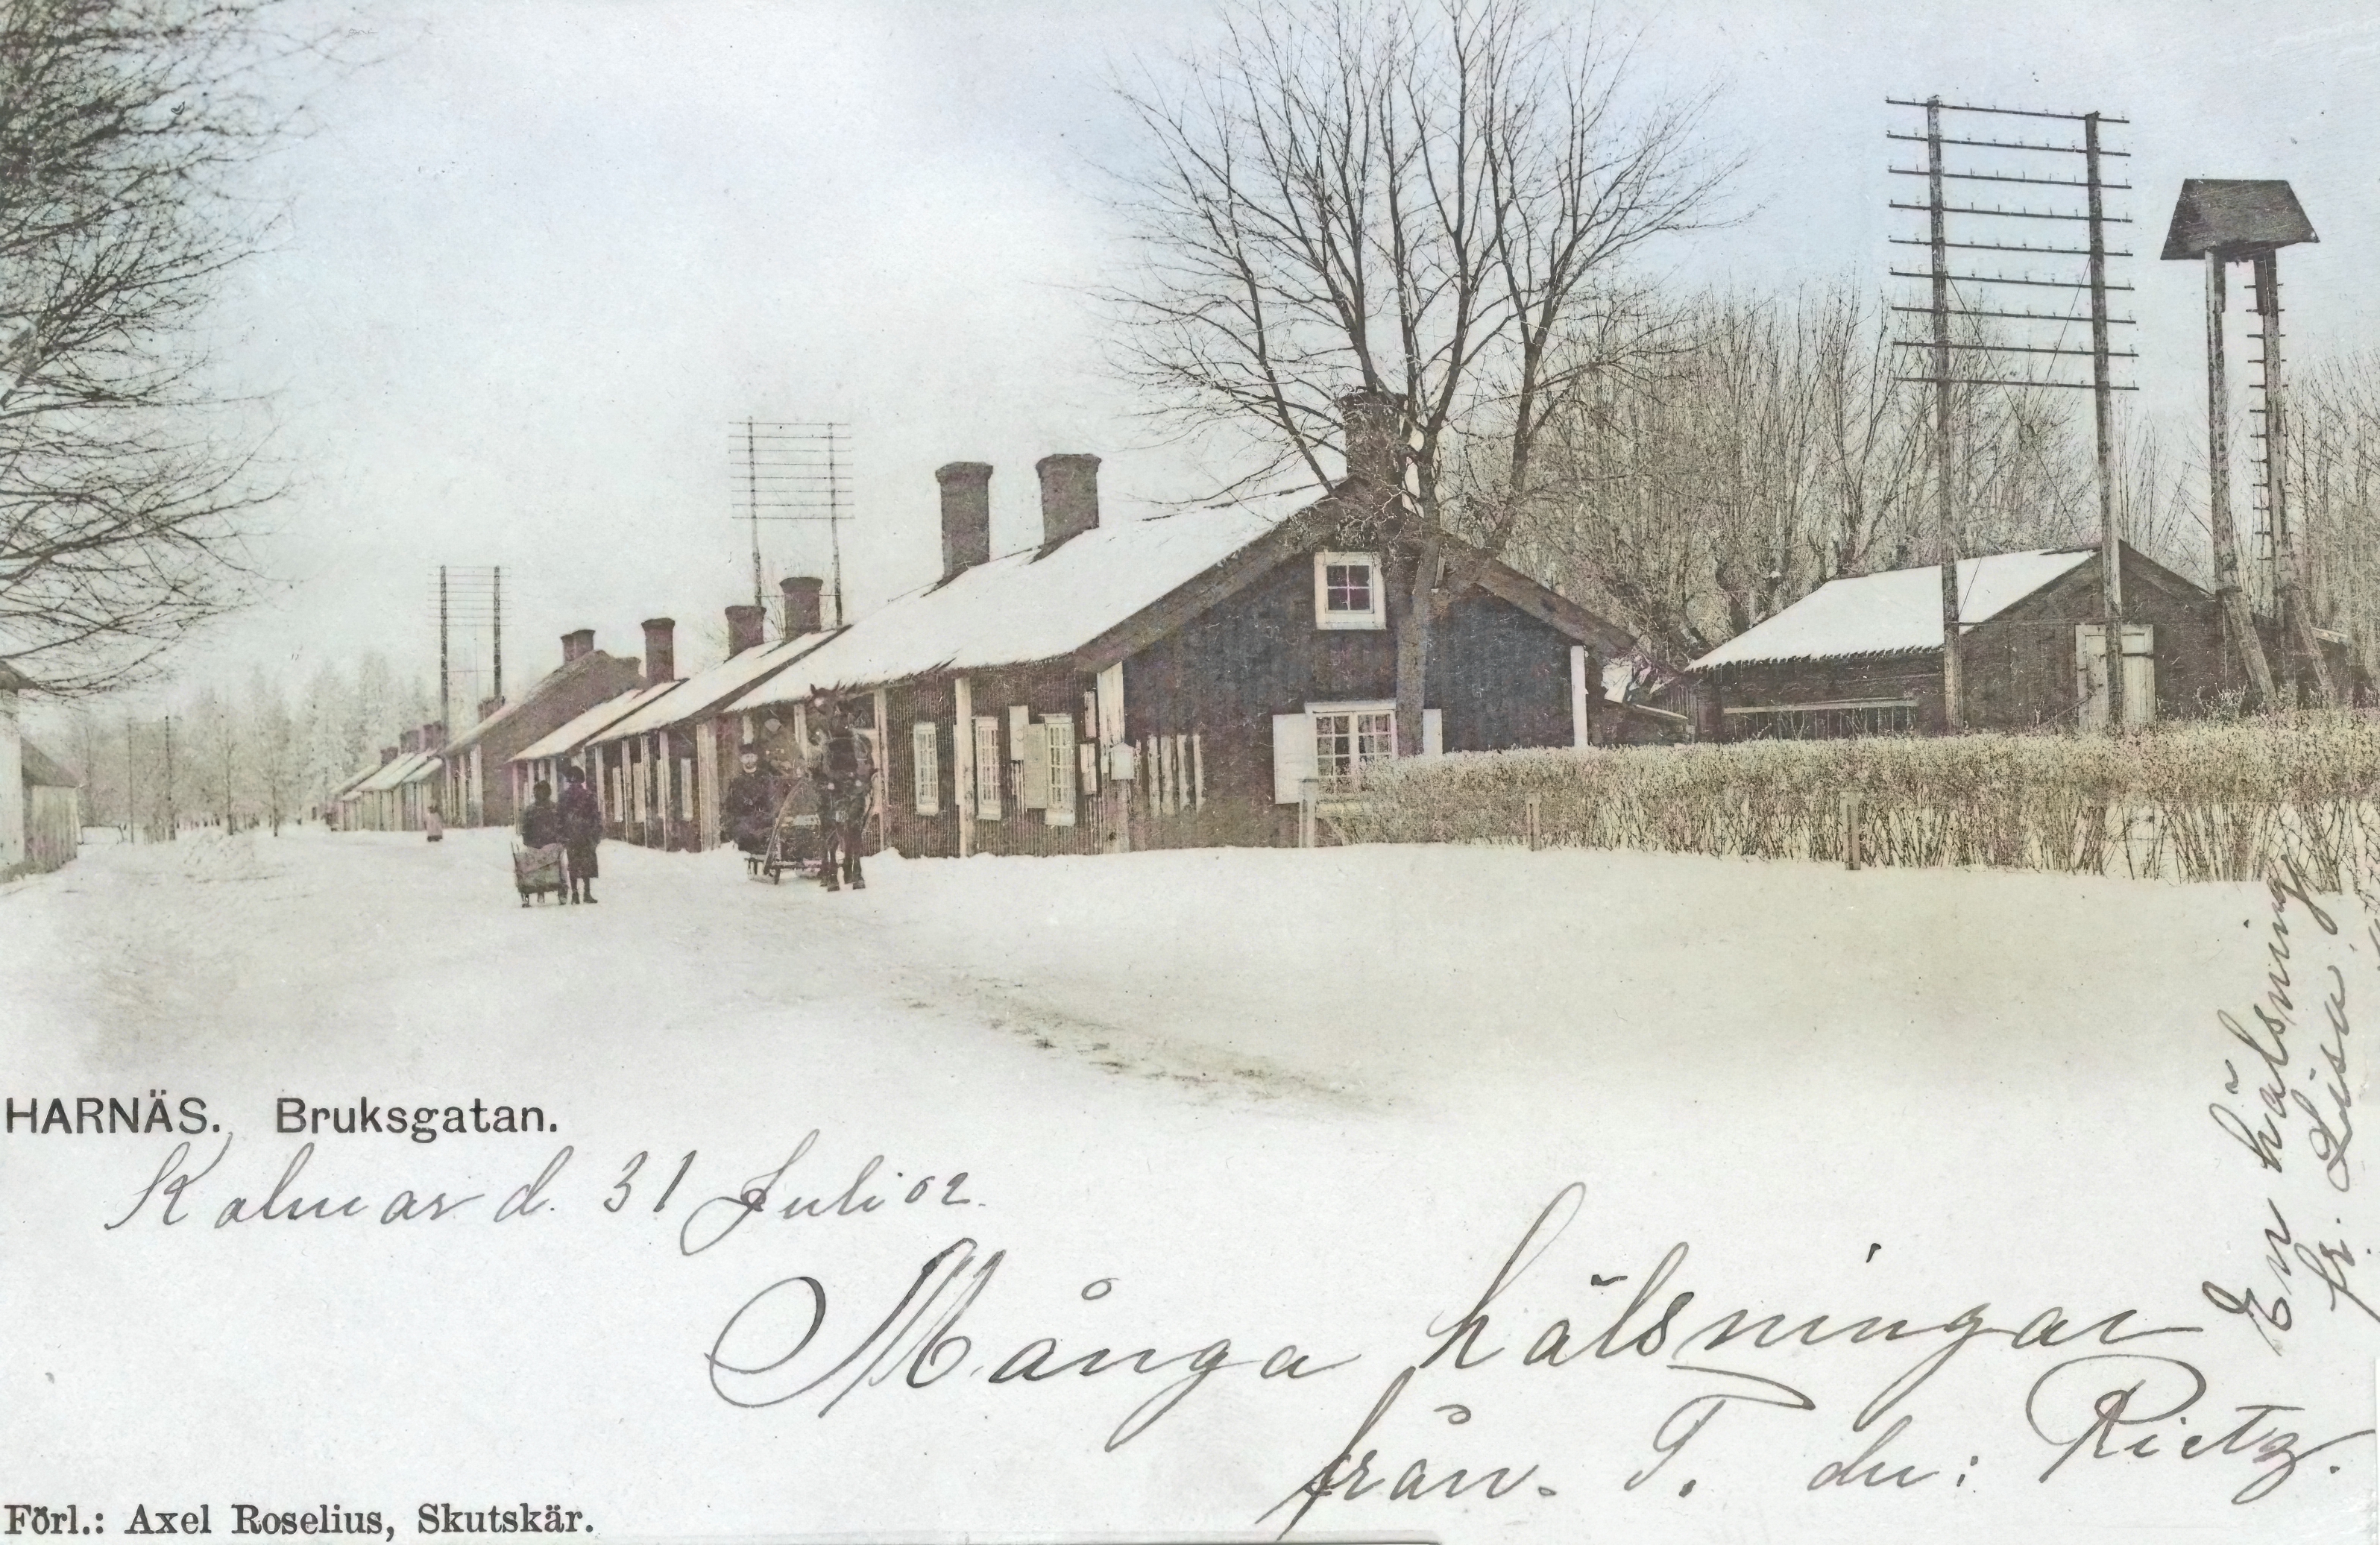 HARNÄS. Bruksgatan.
Kalmar d. 31 Juli 02.
Många hälsningar
från. T. du: Rietz.
En hälsning
fr. Lisa.
Förl.: Axel Roselius, Skutskär.